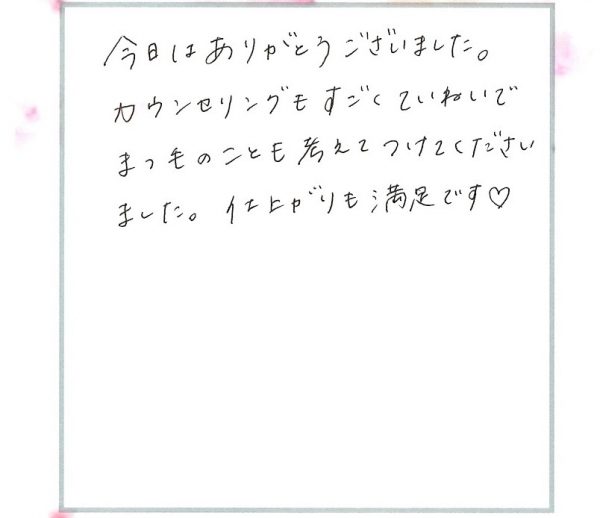 今日はありがとうございました。
カウンセリングもすごくていねいで
まつ毛のことも考えてつけてください
ました。仕上がりも満足です♡